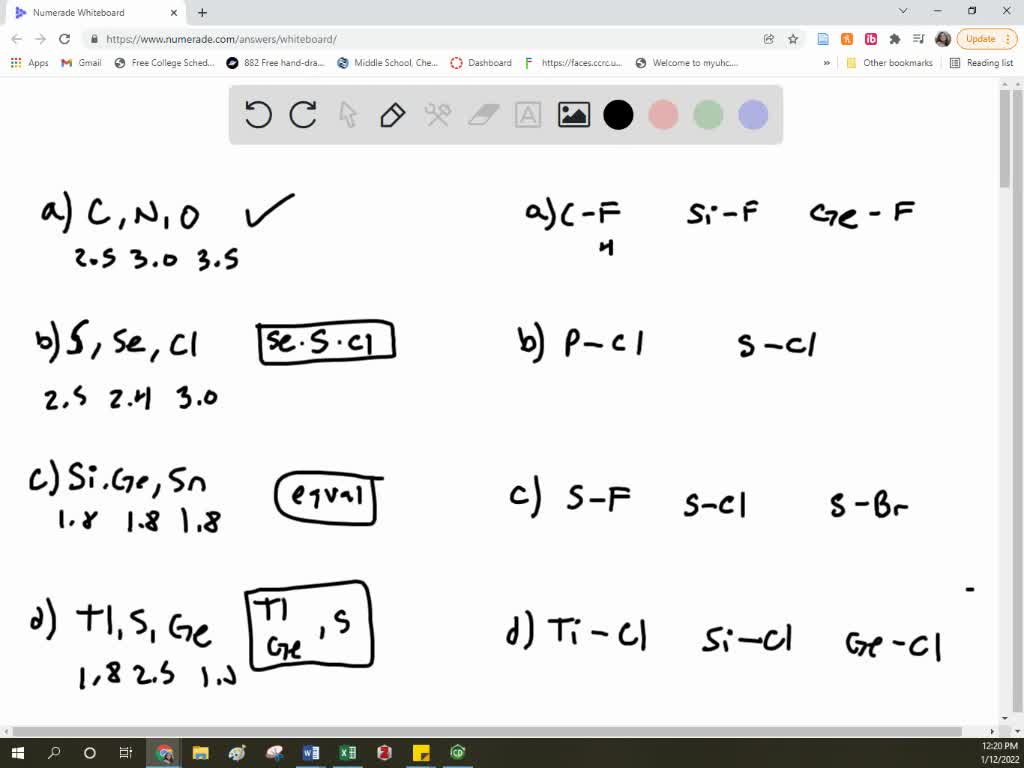 Numerade Whiteboard
https://www.numerade.com/answers/whiteboard/
Update
Apps Gmail Free College Sched... 882 Free hand-dra... Middle School, Che... Dashboard https://faces.ccrc.u... Welcome to myuhc.... » Other bookmarks Reading list
A
a) C, N, O ✓
2.5 3.0 3.5
b) S, Se, Cl Se. S. Cl
2.5 2.4 3.0
c) Si. Ge, Sn equal
1.8 1.8 1.8
d) Tl, S, Ge Tl Ge , S
1,8 2.5
a) C-F Si-F Ge-F
4
b) P-Cl S-Cl
c) S-F S-Cl S-Br
d) Ti-Cl Si-Cl Ge-Cl
12:20 PM
1/12/2022